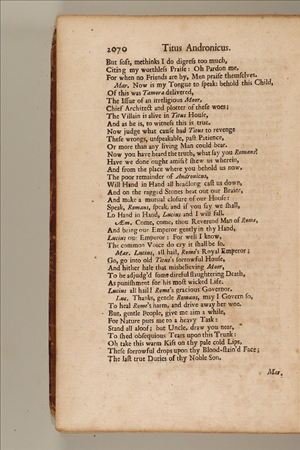 2070 Titus Andronicus.
But soft, methinks I do digress too much,
Citing my worthless Praise: Oh Pardon me,
For when no Friends are by, Men praise themselves.
Mar. Now is my Tongue to speak: behold this Child,
Of this was Tamora delivered,
The Issue of an irreligious Moor,
Chief Architect and plotter of these woes;
The Villain is alive in Titus House,
And as he is, to witness this is true.
Now judge what cause had Titus to revenge
These wrongs, unspeakable, past Patience,
Or more than any living Man could bear.
Now you have heard the truth, what say you Romans?
Have we done ought amiss? shew us wherein,
And from the place where you behold us now.
The poor remainder of Andronicus,
Will Hand in Hand all headlong cast us down,
And on the ragged Stones beat out our Brains,
And make a mutual closure of our House:
Speak, Romans, speak, and if you say we shall,
Lo Hand in Hand, Lucius and I will fall.
Æm. Come, come, thou Reverend Man of Rome,
And bring our Emperor gently in thy Hand,
Lucius our Emperor: For well I know,
The common Voice do cry it shall be so.
Mar. Lucius, all hail, Rome's Royal Emperor;
Go, go into old Titus's sorrowful House,
And hither hale that misbelieving Moor,
To be adjudg'd some direful slaughtering Death,
As punishment for his most wicked Life.
Lucius all hail! Rome's gracious Governor.
Luc. Thanks, gentle Romans, may I Govern so,
To heal Rome's harm, and drive away her woe.
But, gentle People, give me aim a while,
For Nature puts me to a heavy Task:
Stand all aloof; but Uncle, draw you near,
To shed obsequious Tears upon this Trunk:
Oh take this warm Kiss on thy pale cold Lips,
These sorrowful drops upon thy Blood-stain'd Face;
The last true Duties of thy Noble Son.
Mar.